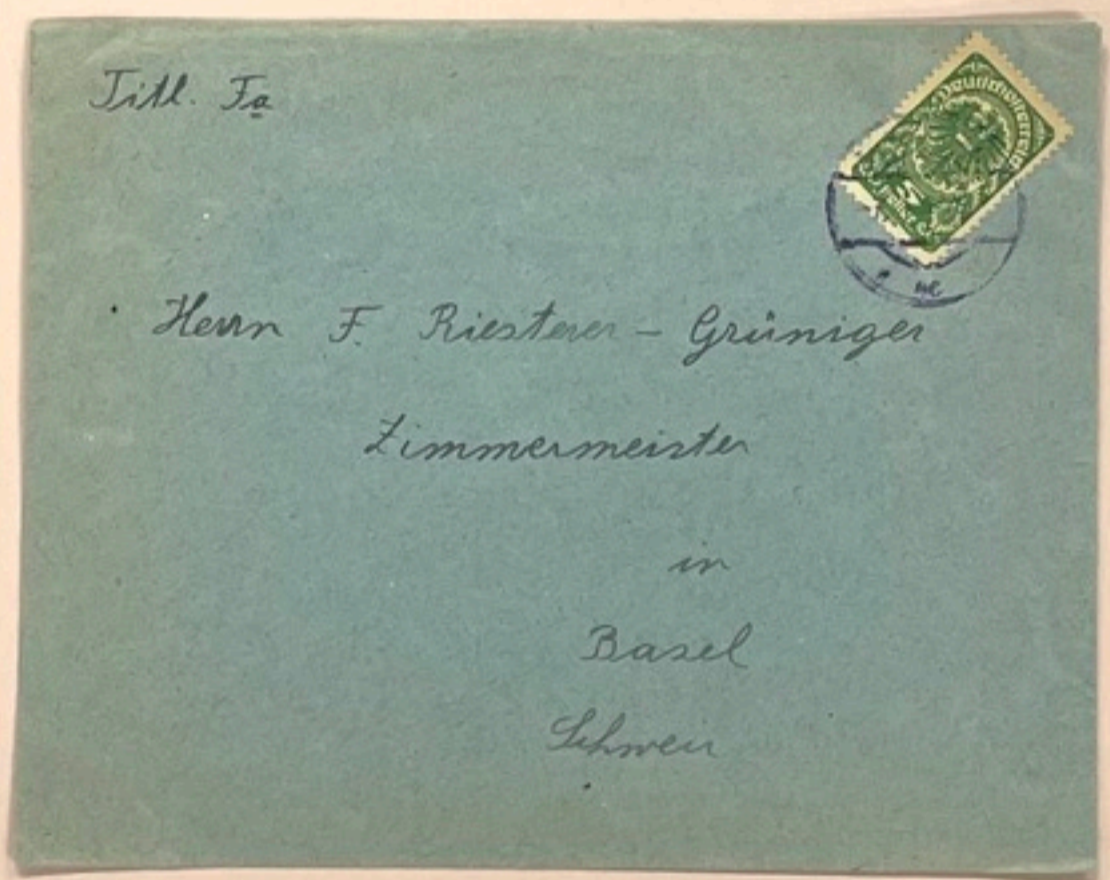 Titl. Fa
Deutschösterreich
Herrn F. Riesterer - Grüniger
Zimmermeister
in
Basel
Schweiz